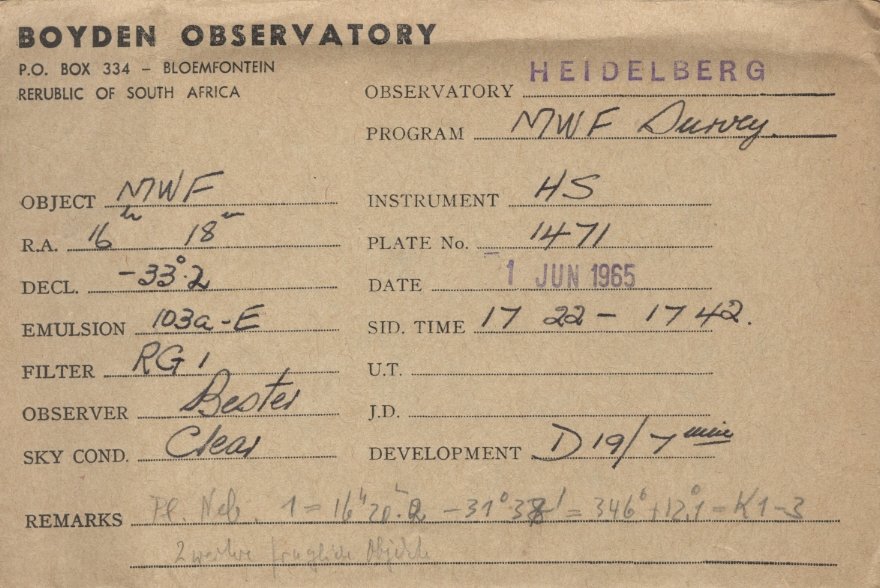 BOYDEN OBSERVATORY
P.O. BOX 334 – BLOEMFONTEIN
RERUBLIC OF SOUTH AFRICA
OBSERVATORY HEIDELBERG
PROGRAM MWF Survey.
OBJECT MWF
R.A. 16h 18m
DECL. -33°.2
EMULSION 103a-E
FILTER RG1
OBSERVER Bester
SKY COND. Clear
INSTRUMENT HS
PLATE No. 1471
DATE -1 JUN 1965
SID. TIME 17 22 – 17 42.
U.T.
J.D.
DEVELOPMENT D19/7 min
REMARKS Pl. Neb. 1 = 16h 20m. -31° = 346° + 12°,1 = K1-3
2 weitere fragliche Objekte